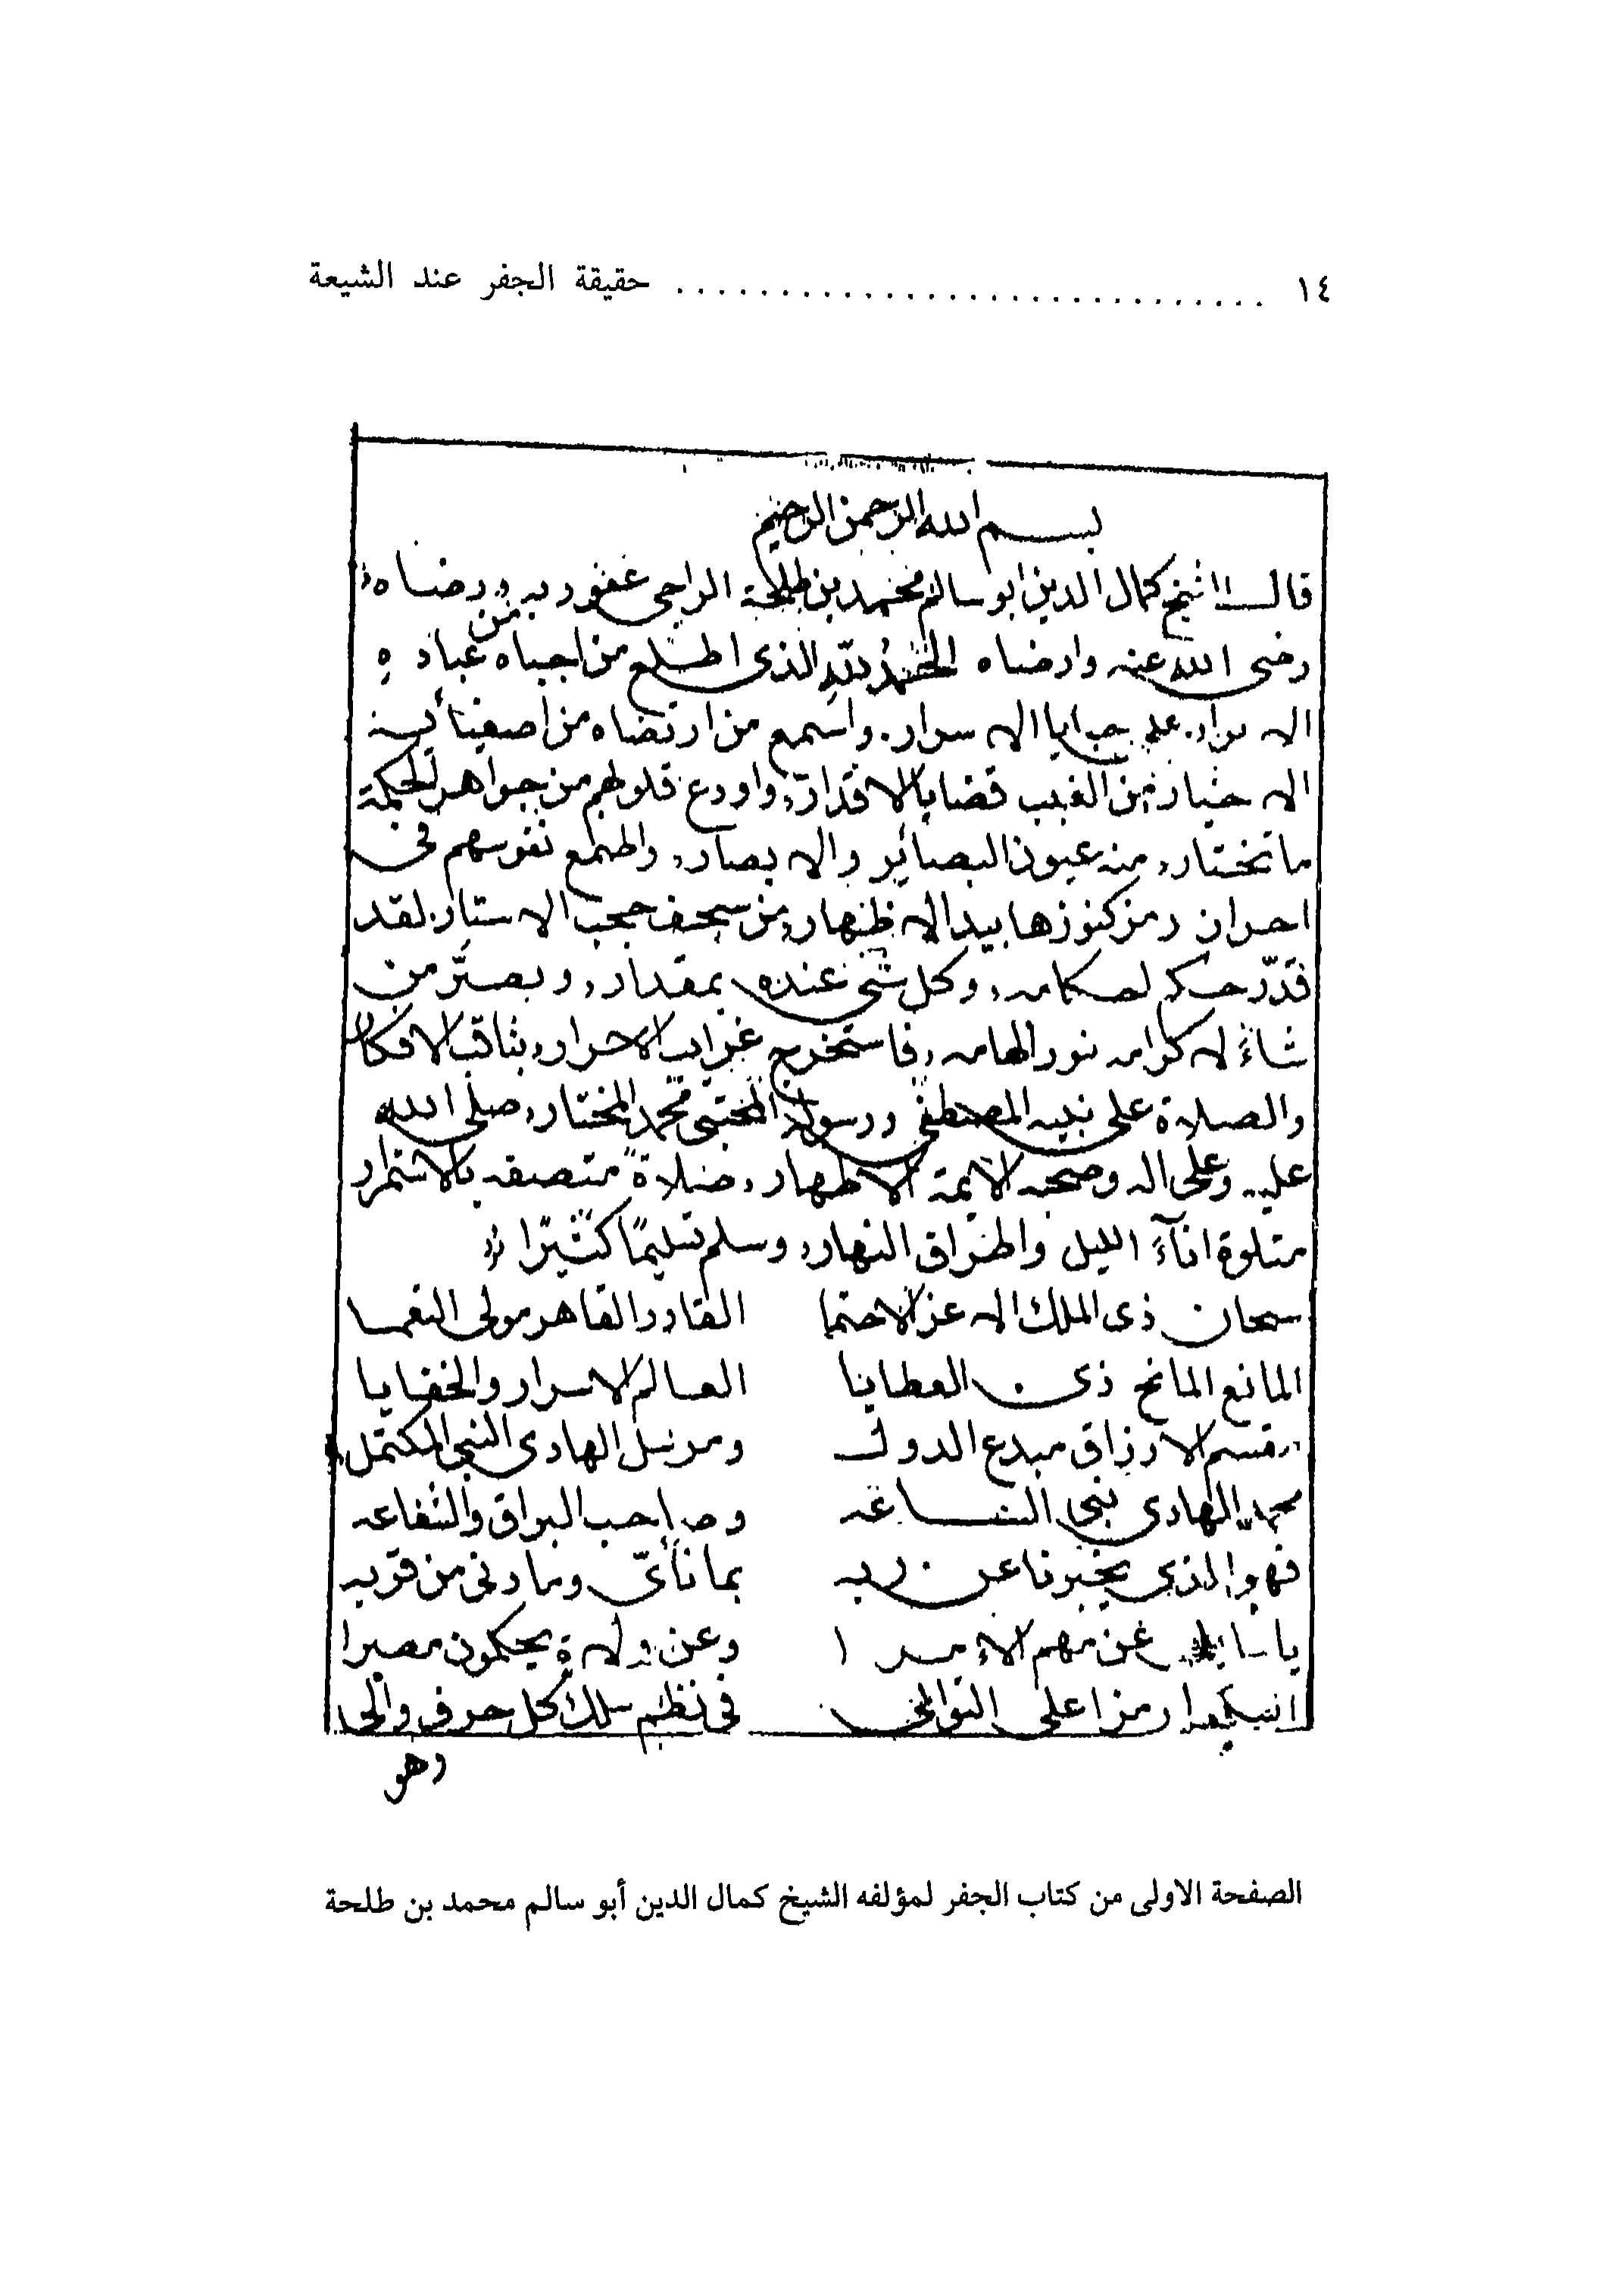 ١٤ ............................ حقيقة الجفر عند الشيعة
بسم الله الرحمن الرحيم
قال الشيخ كمال الدين ابو سالم محمد بن طلحة الراجى عفو ربه ورضاه
رضى الله عنه وارضاه الحمد لله الذى اطلع من اجتباه من عباده
الابرار على خبايا الاسرار، واسمع من ارتضاه من اصفيائه
الاخيار من الغيب قضايا الاقدار، واودع قلوبهم من جواهر الحكمة
ما تختار، منه عيون البصائر والابصار، واطمع نفوسهم فى
احراز رمز كنوزها بيد الاظهار، من سجف حجب الاستار، لقد
قدّر حكم احكامه، وكل شى عنده بمقدار، وبصّر من
شاءَ له كرامه نور الهامه، فاستخرج غرايب الاحرار، بثاقب الافكار
والصلاة على نبيه المصطفى ورسوله المجتبى محمد المختار، صلى الله
عليه وعلى اله وصحبه الائمة الاطهار، صلاةً متصفه بالاستمرار
متلوة اناءَ الليل واطراق النهار، وسلم تسليمًا كثيرًا
سبحان ذى الملك الاله عز الاحتما القادر القاهر مولى النعما
المانع المانح ذى العطايا العالم الاسرار والخفايا
مقسم الارزاق مبدع الدول ومرسل الهادى النبى المكتمل
محمد الهادى نبى الساعه وصاحب البراق والشفاعه
فهو الذى يخبرنا عن ربه بما نأى وما دنى من قربه
يا سايلا عن مهم الامرا وعن ولاة يحكمون مصرا
رمزا على التوالى فى نظم سلك كل حرف والى
وهو
الصفحة الاولى من كتاب الجفر لمؤلفه الشيخ كمال الدين أبو سالم محمد بن طلحة